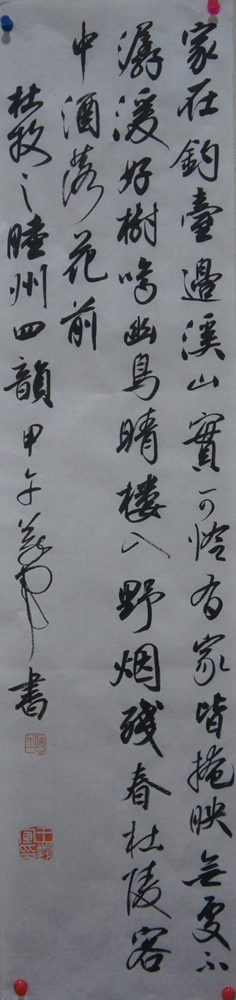 家在釣臺邊溪山實可怜有家皆掩映無處不
潺湲好樹鳴幽鳥晴樓入野烟殘春杜陵客
中酒落花前
杜牧之睦州四韻甲午義軍書